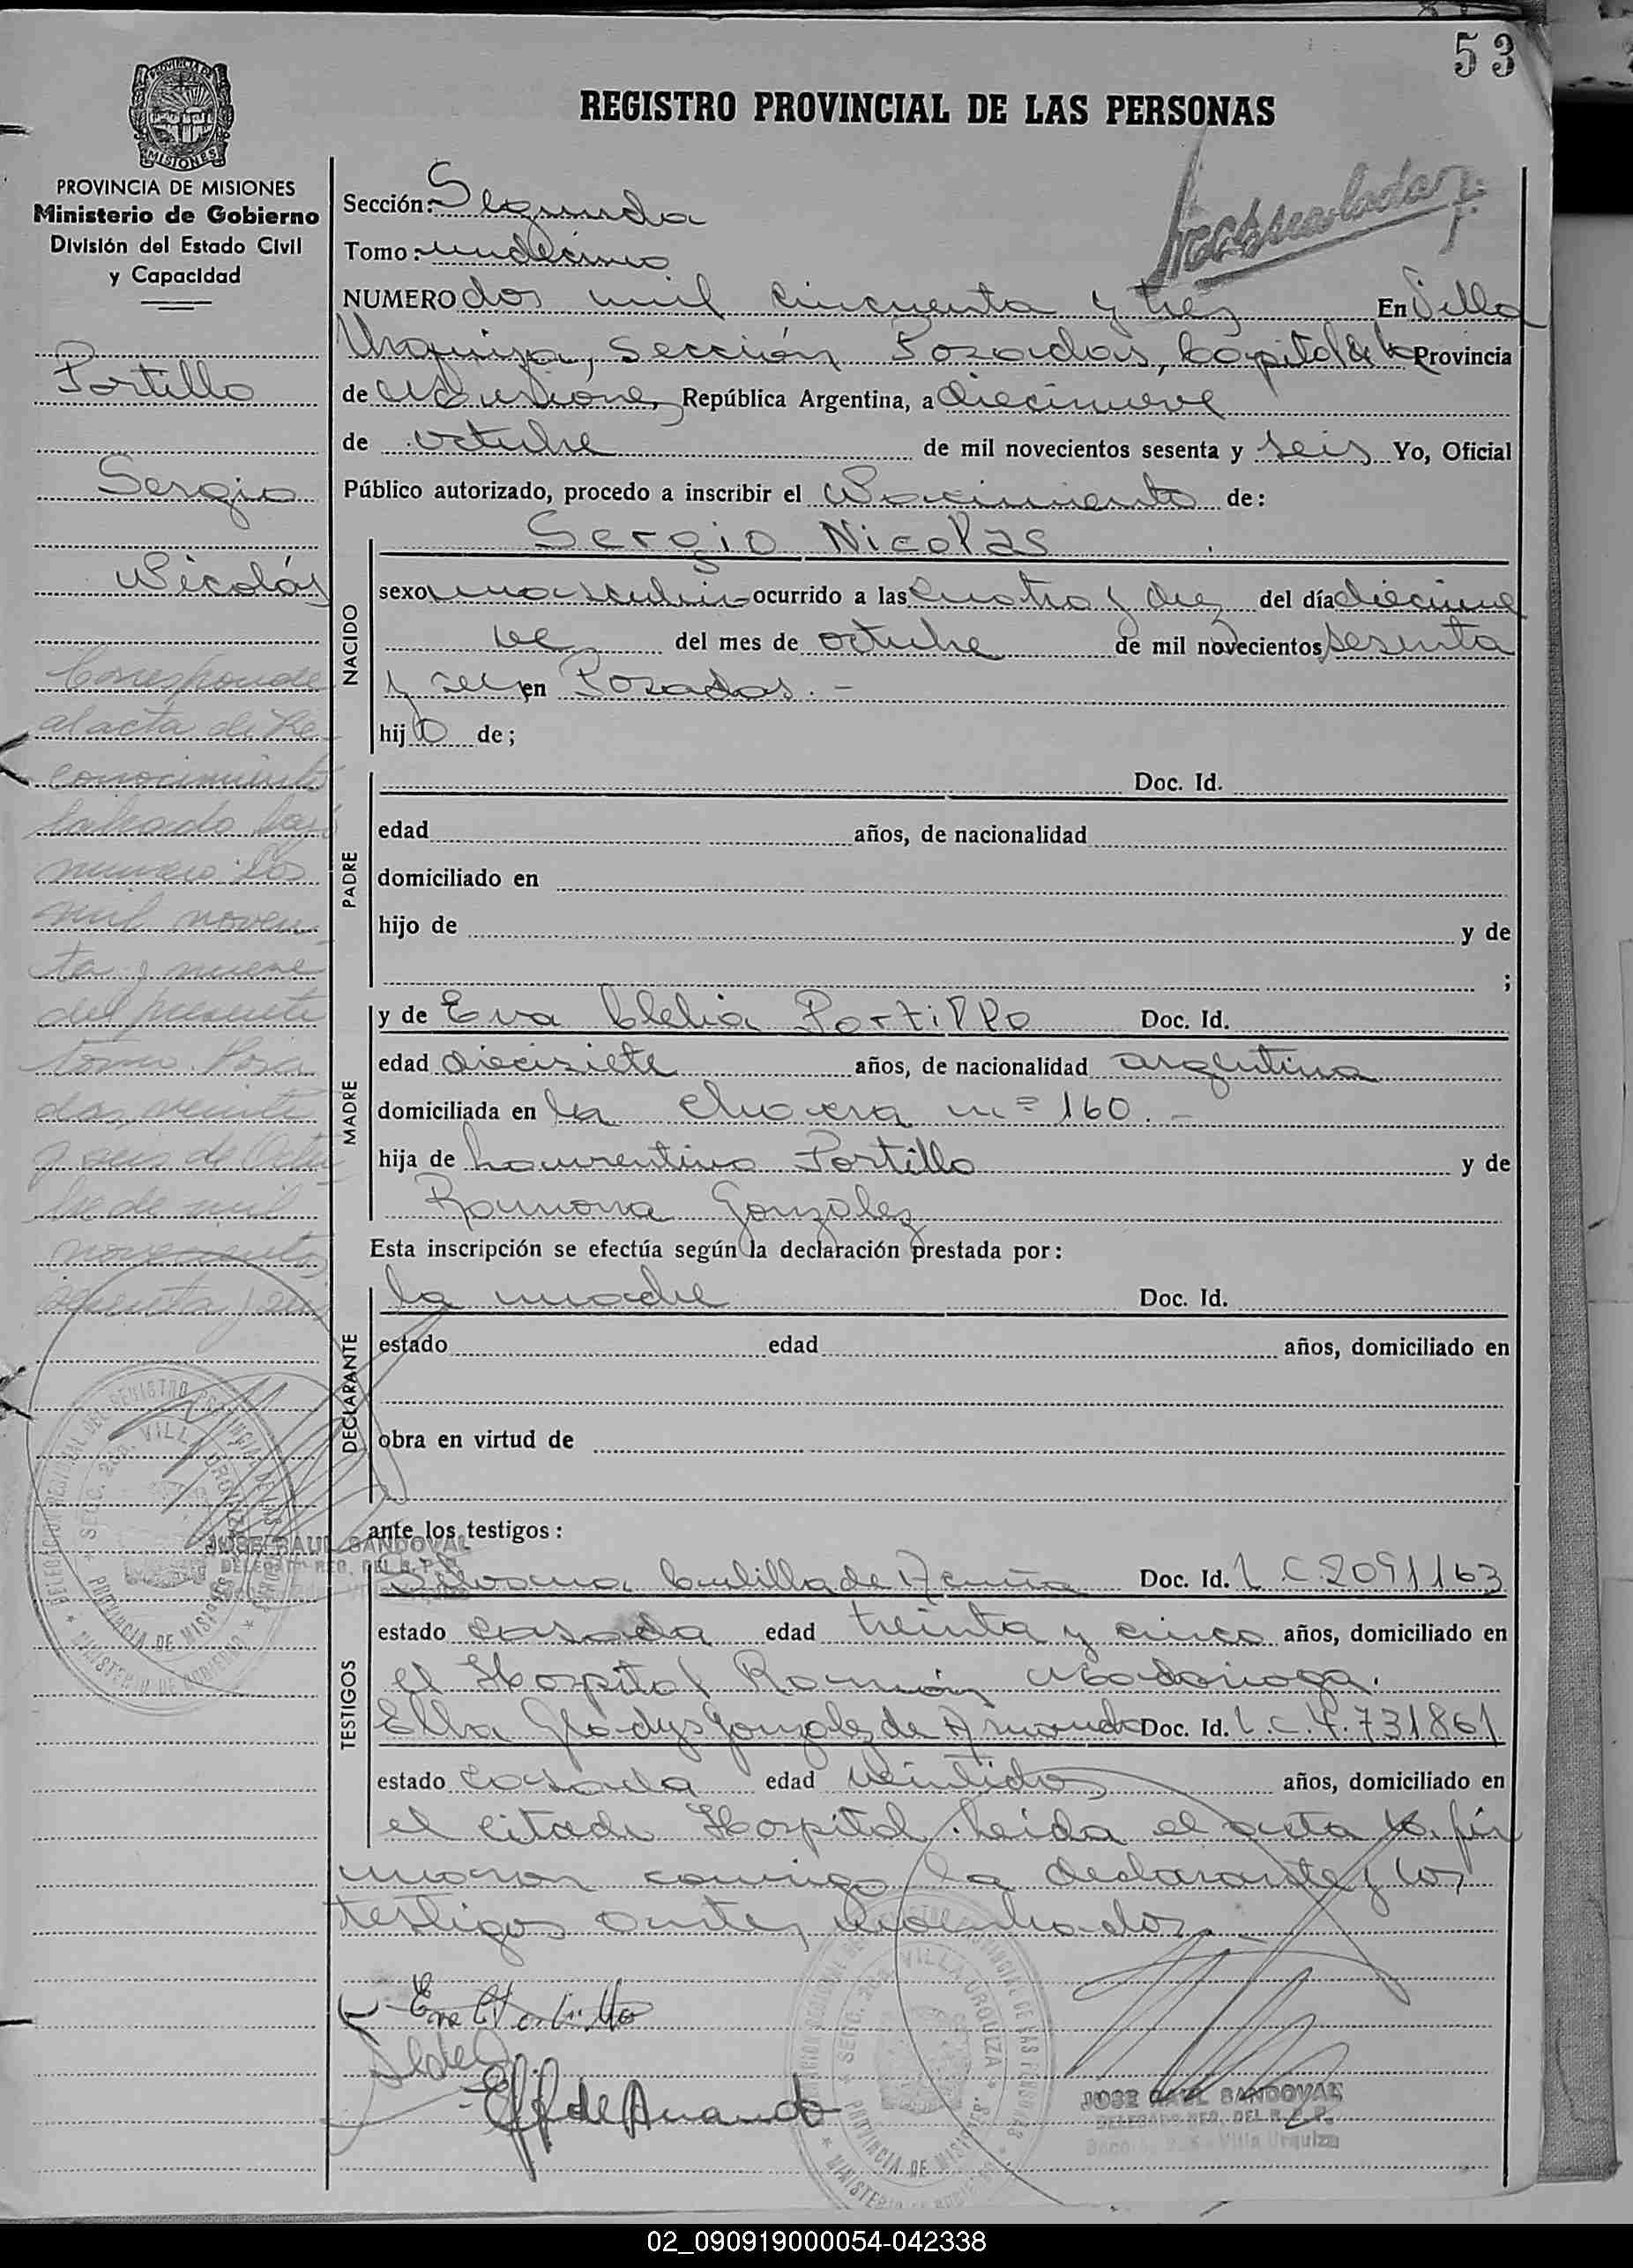 53
PROVINCIA DE
MISIONES
REGISTRO PROVINCIAL DE LAS PERSONAS
PROVINCIA DE MISIONES
Ministerio de Gobierno
División del Estado Civil
y Capacidad
Portillo
Sergio
Nicolás
Corresponde
al acta de Re-
conocimiento
labrado bajo
número dos
mil noven-
ta y nueve
del presente
tomo. Posa
das, veinti
y seis de Octu
bre de mil
novecientos
sesenta y seis
Sección: Segunda
Tomo: undécimo
NUMERO dos mil cincuenta y tres En Villa
Urquiza, Sección Posadas, Capital de la Provincia
de Misiones, República Argentina, a diecinueve
de octubre de mil novecientos sesenta y seis Yo, Oficial
Público autorizado, procedo a inscribir el Nacimiento de:
NACIDO
Sergio Nicolas
sexo masculino ocurrido a las cuatro y diez del día diecinue
ve del mes de octubre de mil novecientos sesenta
y seis en Posadas.-
hijo de;
PADRE
Doc. Id.
edad años, de nacionalidad
domiciliado en
hijo de y de
;
MADRE
y de Eva Clelia Portillo Doc. Id.
edad diecisiete años, de nacionalidad argentina
domiciliada en la chacra nº 160.-
hija de Laurentino Portillo y de
Ramona Gonzalez
Esta inscripción se efectúa según la declaración prestada por:
DECLARANTE
la madre Doc. Id.
estado edad años, domiciliado en
obra en virtud de
ante los testigos:
TESTIGOS
de Acuña Doc. Id. L C 2091163
estado casada edad treinta y cinco años, domiciliado en
el Hospital Ramón Madariaga.
Elba Gladys Gonzalez de Doc. Id. L.C.4.731861
estado casada edad veintidos años, domiciliado en
el citado Hospital. Leída el acta la fir
maron conmigo la declarante y los
testigos antes nombrados.
Eva C Portillo
JOSE RAUL SANDOVAL
DELEGADO REG. DEL R. P. P.
Villa Urquiza
JOSE RAUL SANDOVAL
DELEGADO REG. DEL R. P. P.
DELEGACION REGIONAL DEL REGISTRO PROVINCIAL DE LAS PERSONAS
SECC. 2da. VILLA URQUIZA
PROVINCIA DE MISIONES
MINISTERIO DE GOBIERNO
DELEGACION REGIONAL DEL REGISTRO PROVINCIAL DE LAS PERSONAS
SECC. 2da. VILLA URQUIZA
PROVINCIA DE MISIONES
MINISTERIO DE GOBIERNO
02_090919000054-042338